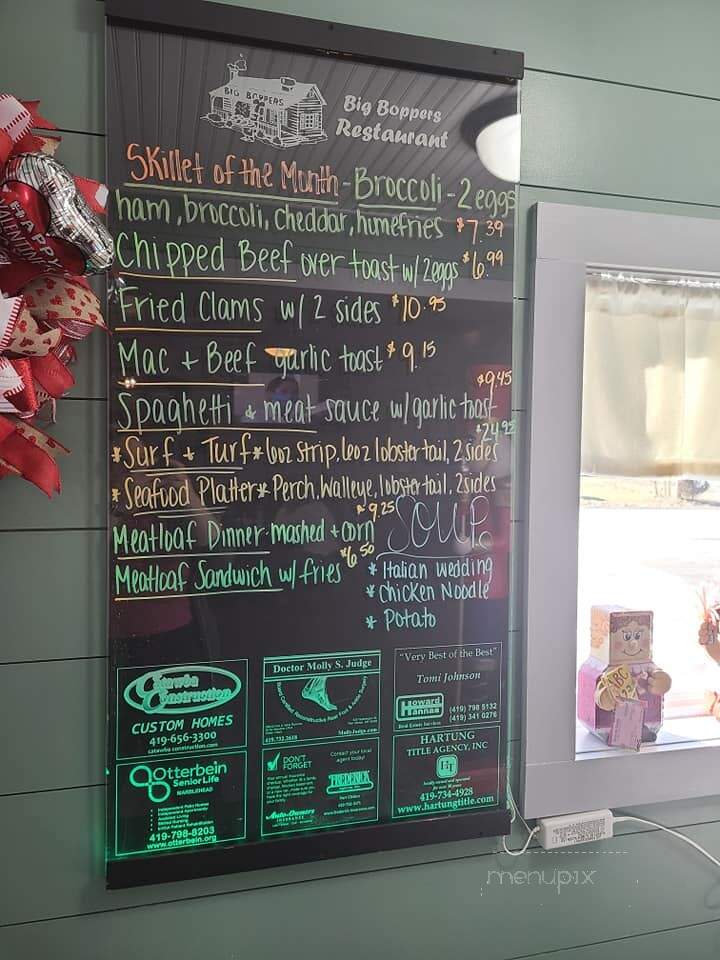 BIG BOPPERS
Big Boppers
Restaurant
Skillet of the Month - Broccoli - 2 eggs
ham, broccoli, cheddar, humefries $7.39
Chipped Beef over toast w/ 2eggs $6.99
Fried Clams w/ 2 sides $10.95
Mac + Beef garlic toast $9.15
$9.45
Spaghetti & meat sauce w/ garlic toast
$24.95
*Surf + Turf* 6oz Strip, 6oz lobster tail, 2 sides
*Seafood Platter* Perch, Walleye, lobster tail, 2 sides
$9.25
Meatloaf Dinner - mashed + corn
$6.50
Meatloaf Sandwich w/ fries
SOUP
* Italian wedding
* Chicken Noodle
* Potato
Catawba
Construction
CUSTOM HOMES
419-656-3300
catawba construction.com
Doctor Molly S. Judge
419.732.2618
MollyJudge.com
"Very Best of the Best"
Tomi Johnson
Howard
Hanna
Real Estate Services
(419) 798 5132
(419) 341 0276
Otterbein
Senior Life
MARBLEHEAD
419-798-8203
www.otterbein.org
DON'T
FORGET
Contact your local
agent today!
Auto-Owners
INSURANCE
FREDERICK
HARTUNG
TITLE AGENCY, INC
419-734-4928
www.hartungtitle.com
HAPPY
VALENTINE
ABC
menupix